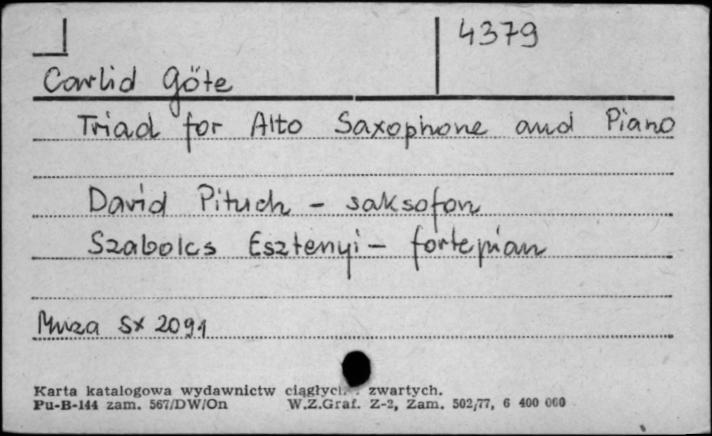 4379
Carlid Göte
Triad for Alto Saxophone and Piano
David Pituch - saksofon
Szabolcs Esztenyi - fortepian
Muza Sx 2091
Karta katalogowa wydawnictw zwartych.
Pu-B-144 zam. 567/DW/On W.Z.Graf. Z-2, Zam. 502/77, 6 400 000